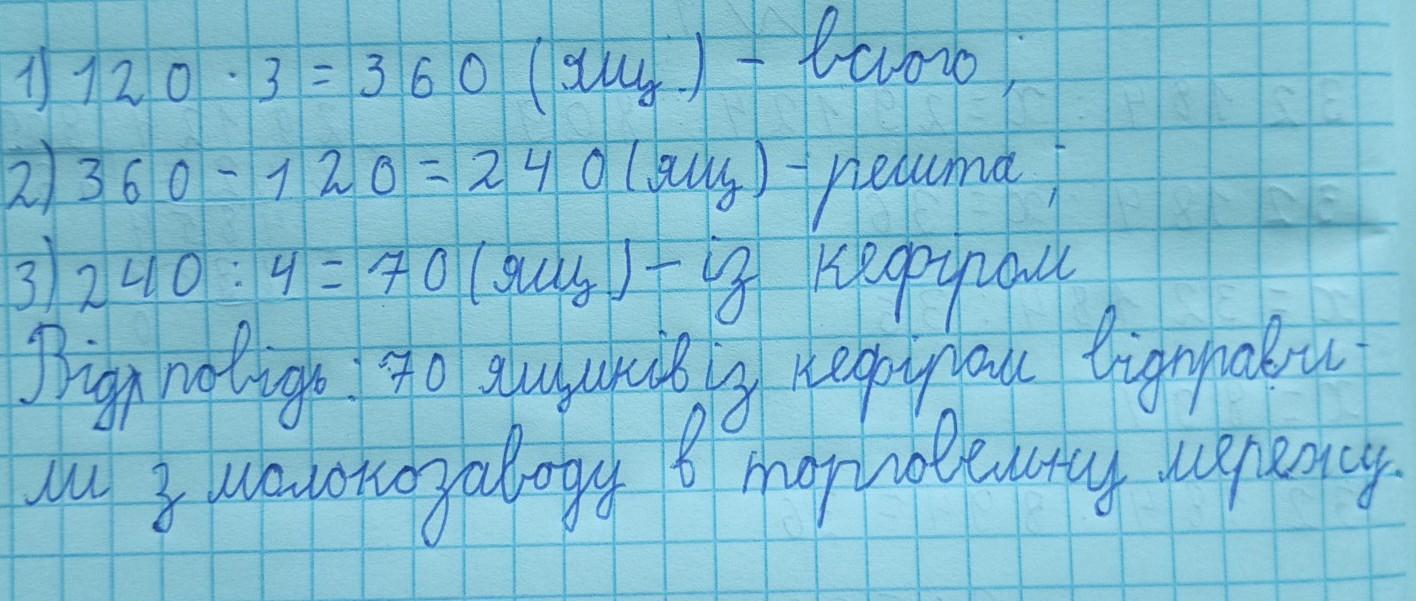 1) 120 · 3 = 360 (ящ.) - всього;
2) 360 - 120 = 240 (ящ) - решта;
3) 240 : 4 = 70 (ящ) - із кефіром
Відповідь: 70 ящиків із кефіром відправи-
ли з молокозаводу в торговельну мережу.